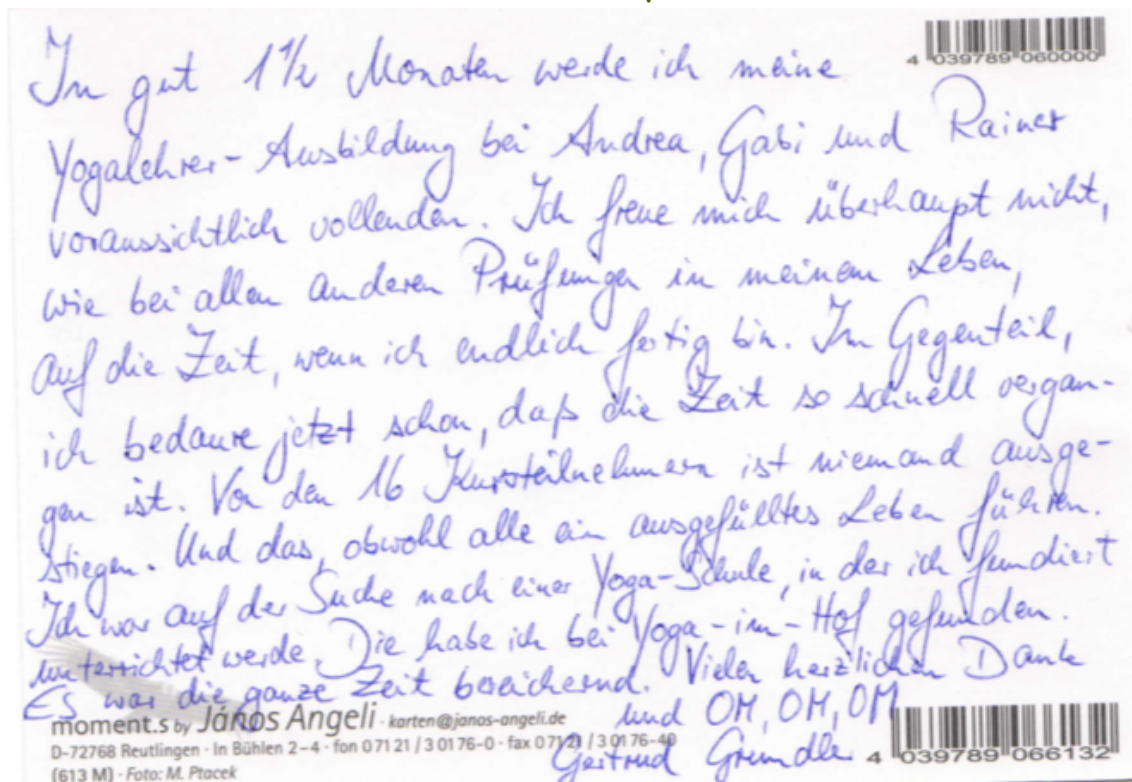 4 039789 060000
In gut 1 1/2 Monaten werde ich meine
Yogalehrer-Ausbildung bei Andrea, Gabi und Rainer
voraussichtlich vollenden. Ich freue mich überhaupt nicht,
wie bei allen anderen Prüfungen in meinem Leben,
auf die Zeit, wenn ich endlich fertig bin. Im Gegenteil,
ich bedaure jetzt schon, daß die Zeit so schnell vergan-
gen ist. Von den 16 Kursteilnehmern ist niemand ausge-
stiegen. Und das, obwohl alle ein ausgefülltes Leben führen.
Ich war auf der Suche nach einer Yoga-Schule, in der ich fundiert
unterrichtet werde. Die habe ich bei Yoga-im-Hof gefunden.
Es war die ganze Zeit bereichernd. Vielen herzlichen Dank
und OM, OM, OM
Gertrud Gründler
moment.s by János Angeli · karten@janos-angeli.de
D-72768 Reutlingen · In Bühlen 2–4 · fon 0 71 21 / 3 01 76-0 · fax 0 71 21 / 3 01 76-40
(613 M) · Foto: M. Ptacek
4 039789 066132